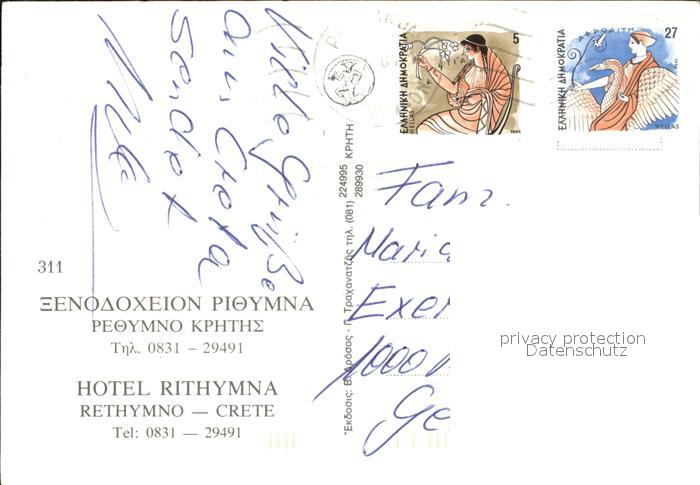 Viele Grüße
aus Creta
sendet
5
ΕΛΛΗΝΙΚΗ ΔΗΜΟΚΡΑΤΙΑ
ΕΣΤΙΑ
HELLAS
1986
27
ΕΛΛΗΝΙΚΗ ΔΗΜΟΚΡΑΤΙΑ
ΑΦΡΟΔΙΤΗ
HELLAS
Fam.
Maria
Exer
1000
Ge
privacy protection
Datenschutz
311
ΞΕΝΟΔΟΧΕΙΟΝ ΡΙΘΥΜΝΑ
ΡΕΘΥΜΝΟ ΚΡΗΤΗΣ
Τηλ. 0831 – 29491
HOTEL RITHYMNA
RETHYMNO — CRETE
Tel: 0831 — 29491
Ἔκδοσις: Β. Δρόσος - Γ. Τραχανατζῆς τηλ. (081) 224995 ΚΡΗΤΗ
289930